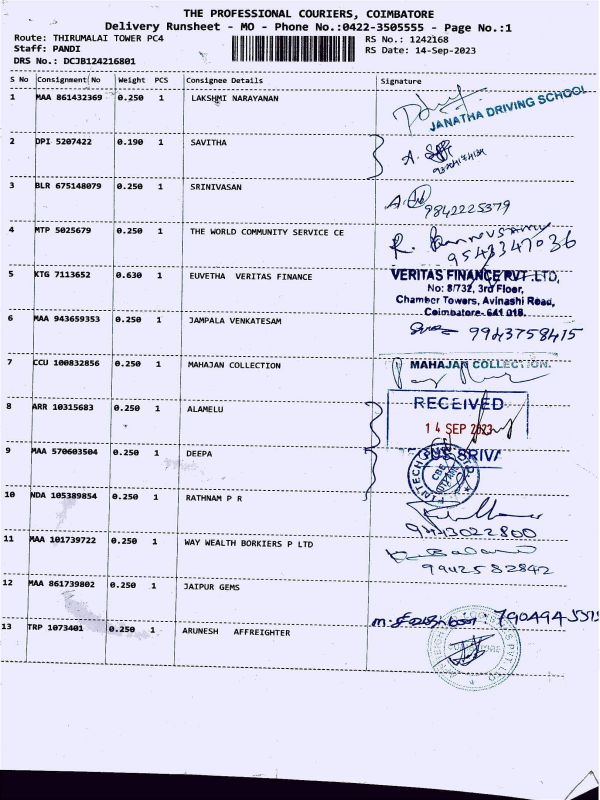 THE PROFESSIONAL COURIERS, COIMBATORE
Delivery Runsheet - MO - Phone No.:0422-3505555 - Page No.:1
Route: THIRUMALAI TOWER PC4 RS No.: 1242168
Staff: PANDI RS Date: 14-Sep-2023
DRS No.: DCJB124216801
S No Consignment No Weight PCS Consignee Details Signature
1 MAA 861432369 0.250 1 LAKSHMI NARAYANAN
JANATHA DRIVING SCHOOL
2 DPI 5207422 0.190 1 SAVITHA
3 BLR 675148079 0.250 1 SRINIVASAN
9842225379
4 MTP 5025679 0.250 1 THE WORLD COMMUNITY SERVICE CE
9543347036
5 KTG 7113652 0.630 1 EUVETHA VERITAS FINANCE
VERITAS FINANCE PVT.LTD,
No: 8/732, 3rd Floor,
Chamber Towers, Avinashi Road,
Coimbatore-641 018.
6 MAA 943659353 0.250 1 JAMPALA VENKATESAM
9943758415
7 CCU 100832856 0.250 1 MAHAJAN COLLECTION
MAHAJAN COLLECTION.
8 ARR 10315683 0.250 1 ALAMELU
RECEIVED
14 SEP 2023
9 MAA 570603504 0.250 1 DEEPA
10 NDA 105389854 0.250 1 RATHNAM P R
9443022800
11 MAA 101739722 0.250 1 WAY WEALTH BORKIERS P LTD
9942582842
12 MAA 861739802 0.250 1 JAIPUR GEMS
13 TRP 1073401 0.250 1 ARUNESH AFFREIGHTER